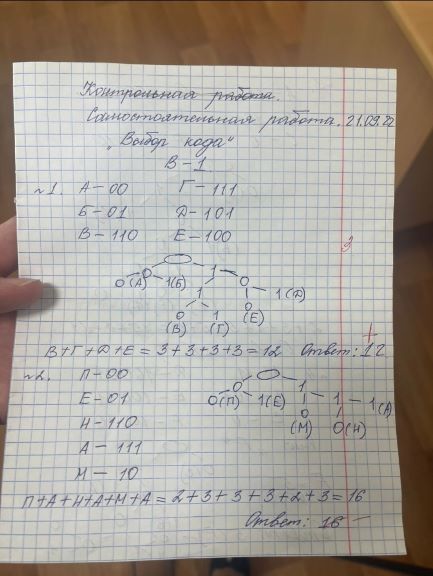 Контрольная работа.
Самостоятельная работа. 21.09.22
„Выбор кода"
В-1
~1. А-00 Г-111
Б-01 Д-101
В-110 Е-100
3
1
0 0
0(А) 1(Б) 1 1(Д)
0 1 0
(В) (Г) (Е)
В+Г+Д+Е=3+3+3+3=12 Ответ: 12
+
~2. П-00
Е-01
Н-110
А-111
М-10
0 1
0(П) 1(Е) 1 1(А)
0 0(Н)
(М)
П+А+Н+А+М+А=2+3+3+3+2+3=16
Ответ: 16 -